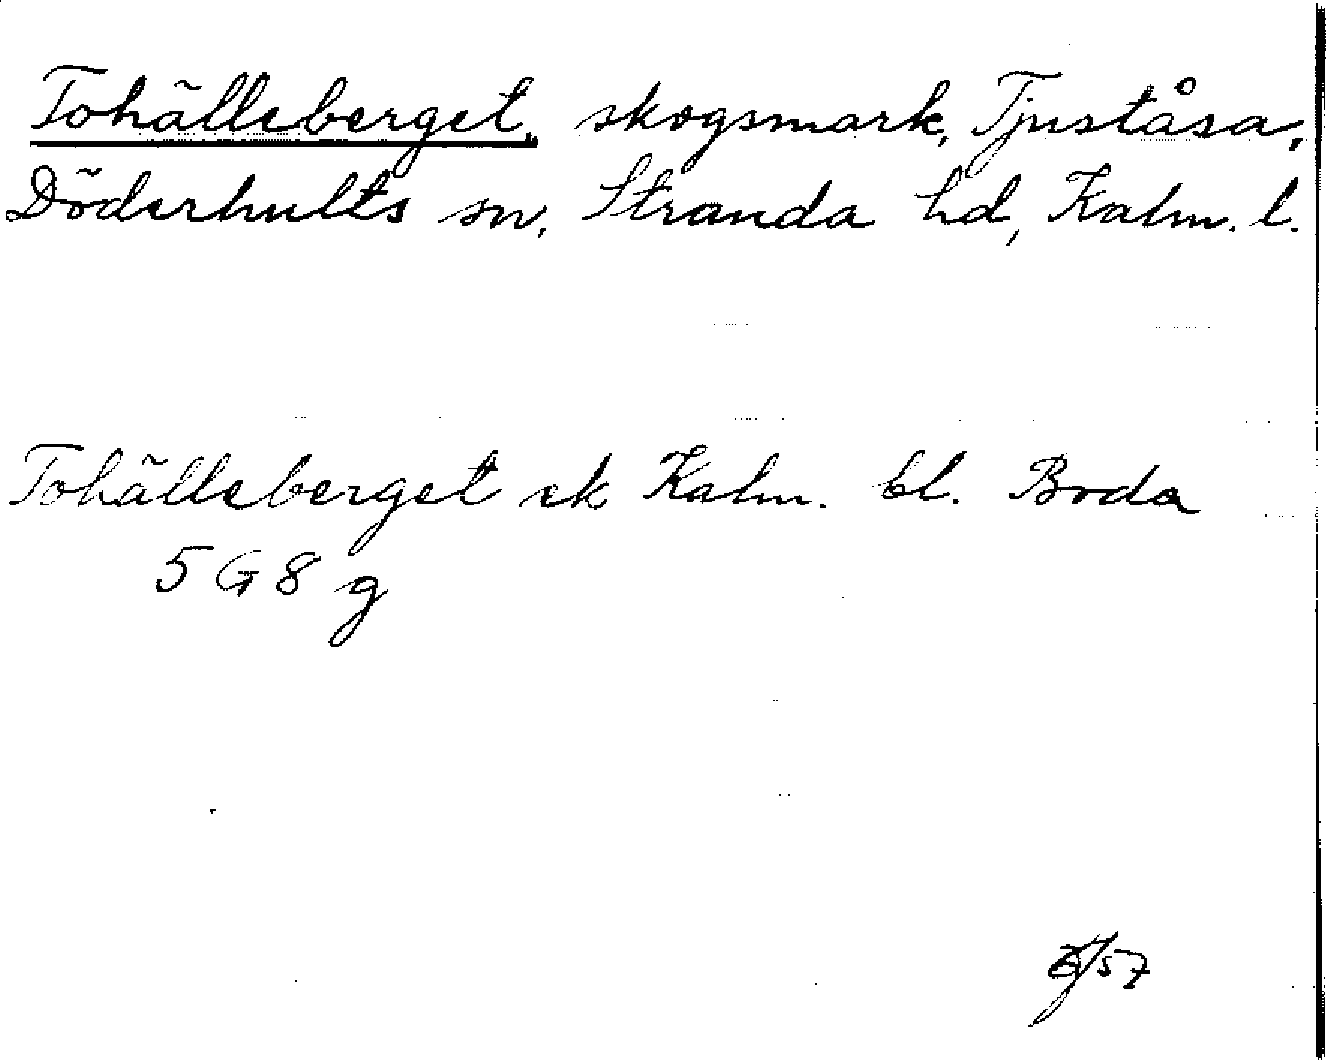 Tohälleberget, skogsmark, Tjuståsa,
Döderhults sn, Stranda hd, Kalm. l.
Tohälleberget ek Kalm. bl. Boda
5 G 8 g